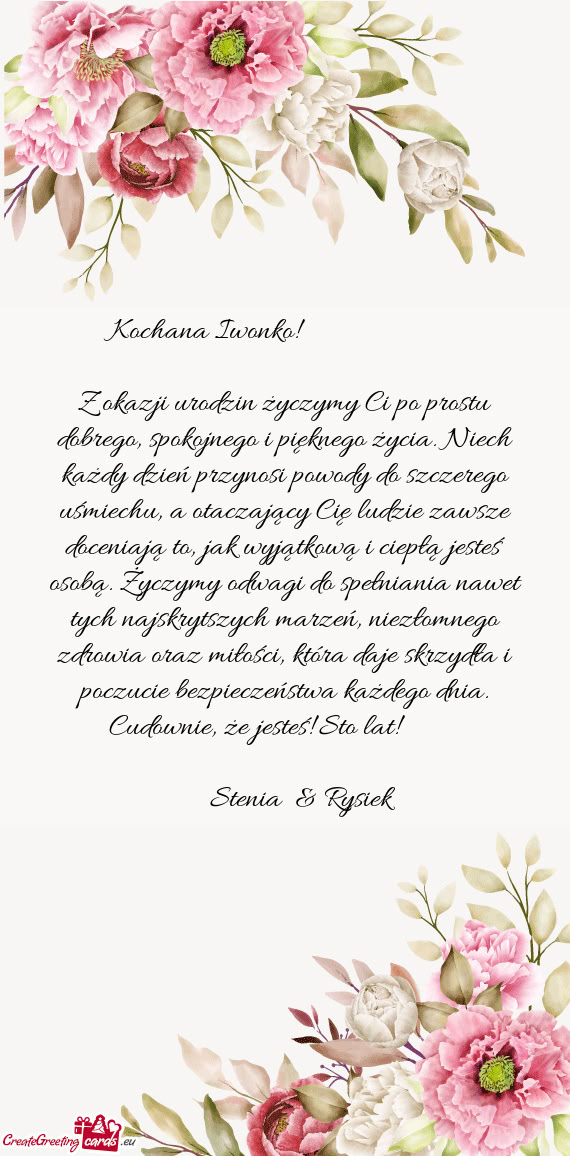 Kochana Iwonko!
Z okazji urodzin życzymy Ci po prostu
dobrego, spokojnego i pięknego życia. Niech
każdy dzień przynosi powody do szczerego
uśmiechu, a otaczający Cię ludzie zawsze
doceniają to, jak wyjątkową i ciepłą jesteś
osobą. Życzymy odwagi do spełniania nawet
tych najskrytszych marzeń, niezłomnego
zdrowia oraz miłości, która daje skrzydła i
poczucie bezpieczeństwa każdego dnia.
Cudownie, że jesteś! Sto lat!
Stenia & Rysiek
CreateGreeting cards .eu